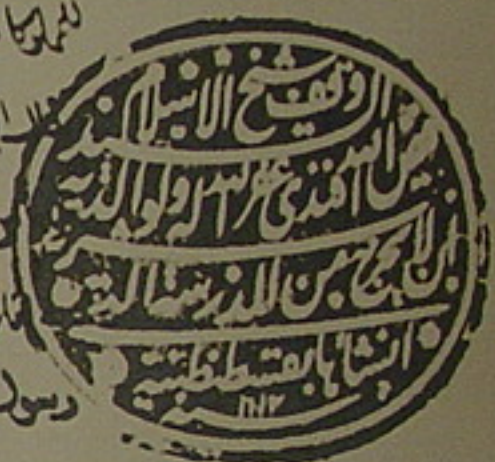 وقف شيخ الاسلام السيد
فيض الله افندى غفر الله له ولوالديه
بشرط ان لا يخرج من المدرسة التى
انشاها بقسطنطينية
سنه ١١١٢
رسول